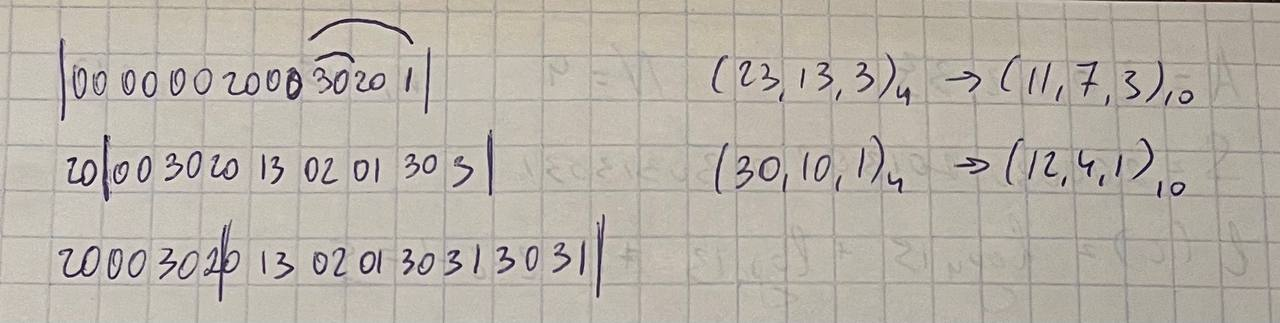 |00 00 00 2000 3020 1| (23,13,3)₄ → (11,7,3)₁₀
20|00 3020 13 02 01 30 3| (30,10,1)₄ → (12,4,1)₁₀
2000 3020| 13 02 01 30 31 30 31|